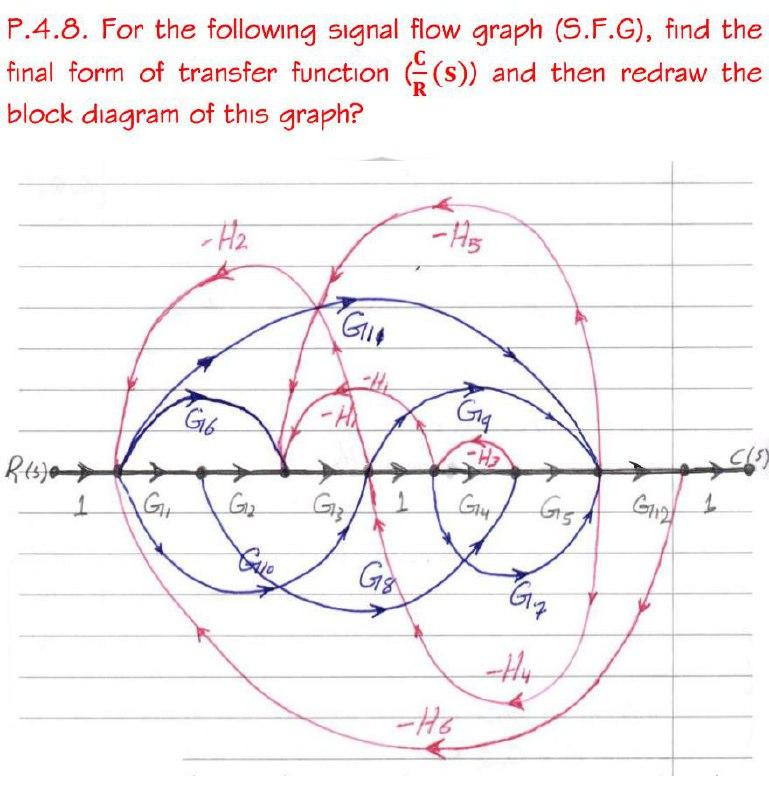 P.4.8. For the following signal flow graph (S.F.G), find the
final form of transfer function (C/R (s)) and then redraw the
block diagram of this graph?
-H2
-H5
G11
-H1
-H1
G6
G9
-H3
R(s)
C(s)
1 G1 G2 G3 1 G4 G5 G12 1
G10
G8
G7
-H4
-H6